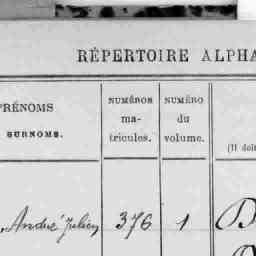 RÉPERTOIRE ALPHA
PRÉNOMS
SURNOMS.
NUMÉROS
ma-
tricules.
NUMÉRO
du
volume.
(Il doit
André Julien 376 1 D